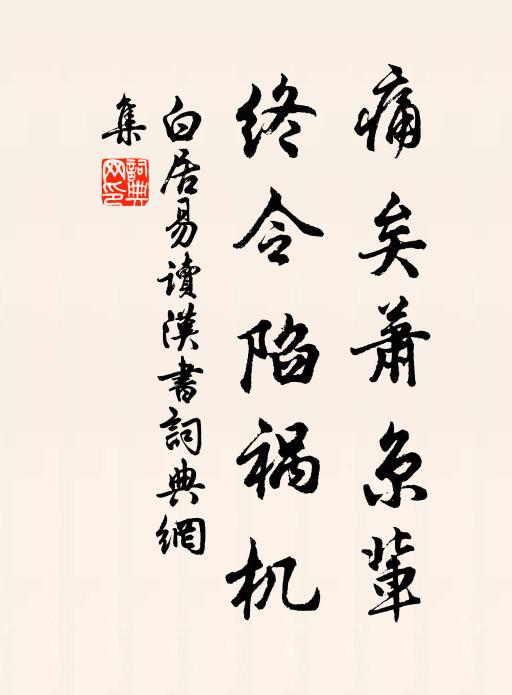 痛矣蕭京輩
终令陷祸机
白居易讀漢書詞典網
集
詞典
网印